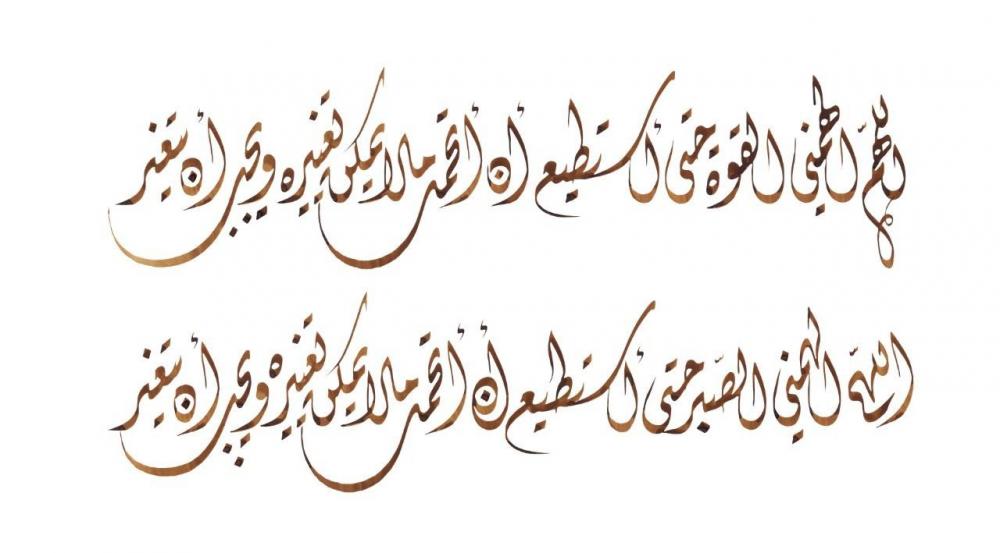 اللهم الهمني القوة حتى أستطيع أن أتحمل مالا يمكن تغييره ويجب أن يتغير
اللهم الهمني الصبر حتى أستطيع أن أتحمل مالا يمكن تغييره ويجب أن يتغير